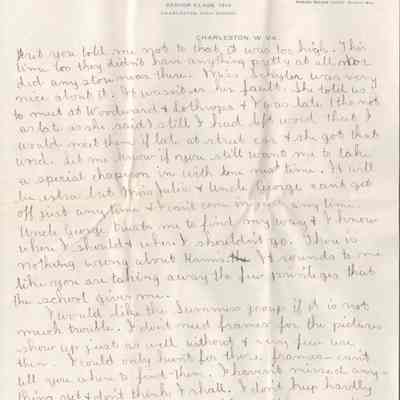 SENIOR CLASS, 1914
CHARLESTON HIGH SCHOOL
CHARLESTON, W. VA.
But you told me not to that, it was too high. This
time too they didn't have anything pretty at all nor
did any stores near there. Miss Schuyler was very
nice about it. It wasn't her fault. She told us
to meet at Woodward & Lothrops & I was late (tho not
as late as she said) still I had left word that I
would meet them if late at street car & she got that
word. Let me know if you still want me to take
a special chaperon in with me next time. It will
be extra but Miss Julia & Uncle George can't get
off just any time & I can't come in just any time.
Uncle George trusts me to find my way & I know
where I should & where I shouldn't go. There is
nothing wrong about It sounds to me
like you are taking away the few privileges that
the school gives me.
I would like the Summers group if it is not
much trouble. I don't need frames for the pictures
show up just as well without & very few use
them. I could only hunt for those frames - can't
tell you where to find them. I haven't missed any-
thing yet & don't think I shall. I don't keep hardly